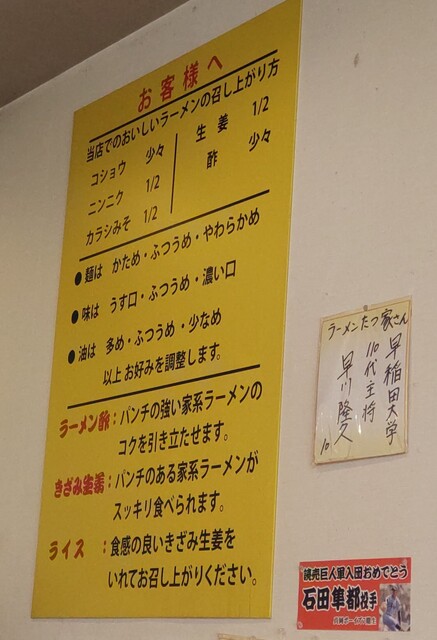 お客様へ
当店でのおいしいラーメンの召し上がり方
コショウ 少々
ニンニク 1/2
カラシみそ 1/2
生姜 1/2
酢 少々
●麺は かため・ふつうめ・やわらかめ
●味は うす口・ふつうめ・濃い口
●油は 多め・ふつうめ・少なめ
以上お好みを調整します。
ラーメン酢：パンチの強い家系ラーメンの
コクを引き立たせます。
きざみ生姜：パンチのある家系ラーメンが
スッキリ食べられます。
ライス ：食感の良いきざみ生姜を
いれてお召し上がりください。
ラーメンたつ家さん
早稲田大学
110代主将
早川隆久
10
読売巨人軍入団おめでとう
石田隼都投手